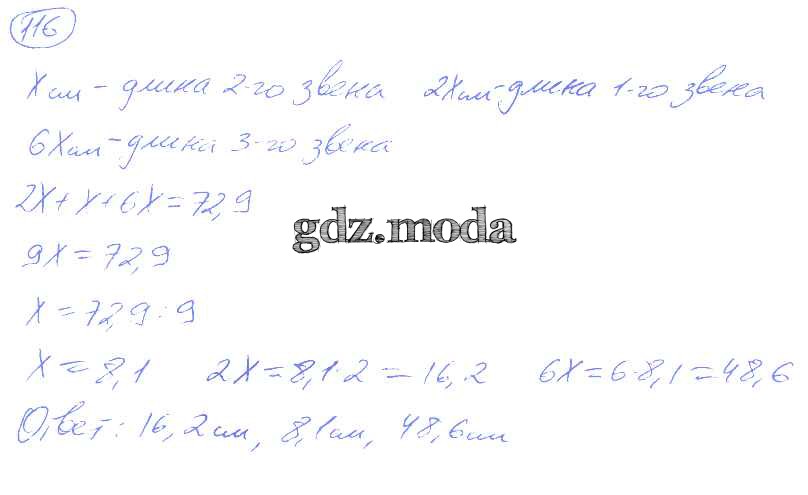 116
Xсм - длина 2-го звена 2Xсм - длина 1-го звена
6Xсм - длина 3-го звена
2X + X + 6X = 72,9
gdz.moda
9X = 72,9
X = 72,9 : 9
X = 8,1 2X = 8,1·2 = 16,2 6X = 6·8,1 = 48,6
Ответ: 16,2см, 8,1см, 48,6см